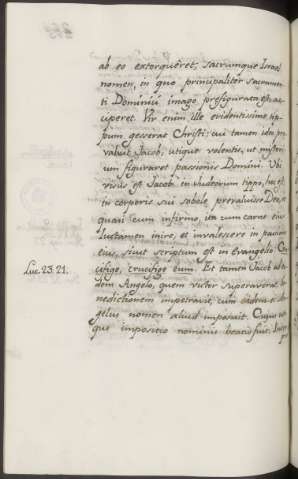 ab eo extorqueret, sacrumque Israel
nomen, in quo principaliter sacramen
ti Dominici imago praefigurata est, ac
ciperet. Vir enim ille evidentissime ty
pum gesserat Christi: cui tamen ideo prae
valuit Jacob, utique volentis, ut mysteri
um figuraret passionis Domini. Ubi
visus est Jacob in Judaeorum typo, hoc est
in corporis sui sobole praevaluisse Deo, et
quasi cum infirmo, ita cum carne eius
luctamen inire, et invalescere in passione
eius, sicut scriptum est in Evangelio Cru
Luc. 23. 21.
cifige, crucifige eum. Et tamen Jacob ab eo
dem Angelo, quem victor superaverat, be
nedictionem impetravit, cum eidem et An
gelus nomen aliud imposuit. Cuius uti
que impositio nominis beatio fuit.